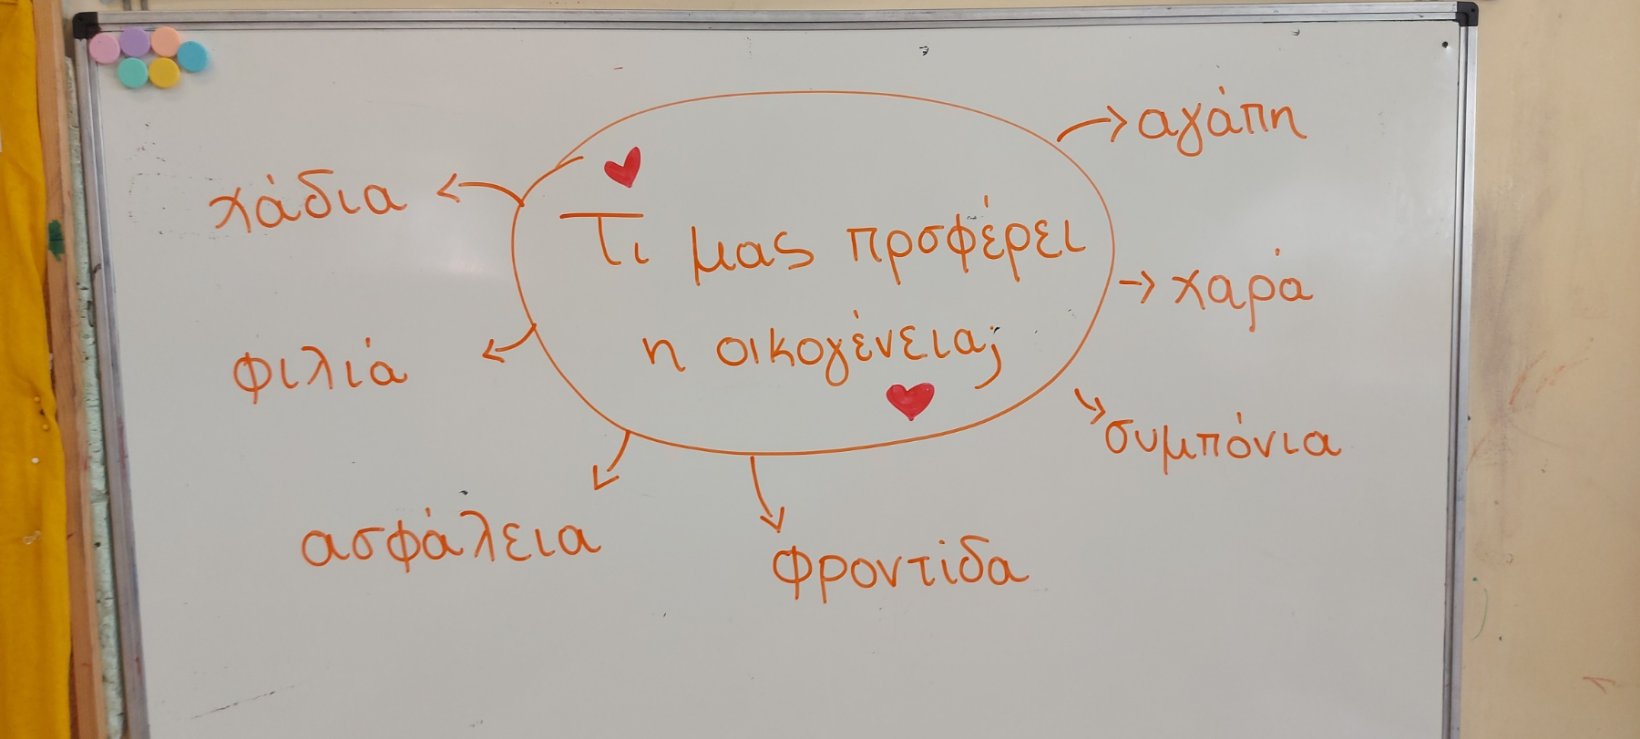 Τι μας προσφέρει
η οικογένεια;
αγάπη
χαρά
συμπόνια
φροντίδα
ασφάλεια
φιλιά
χάδια